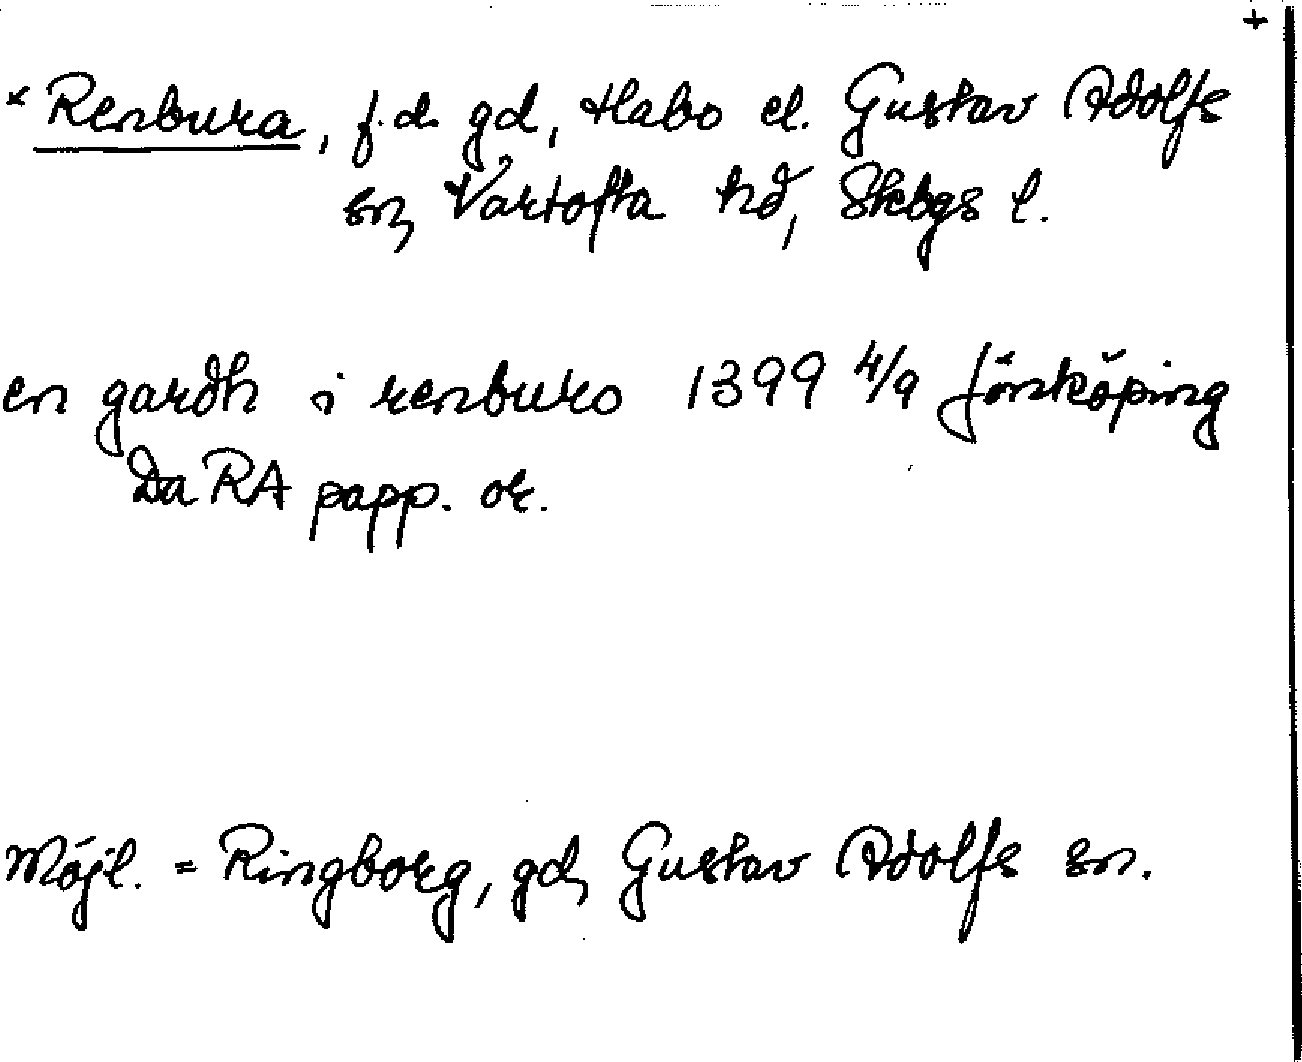 +
× Renbura, f.d. gd, Habo el. Gustav Adolfs
sn, Vartofta hd, Skbgs l.
en gardh i renburo 1399 4/9 Jönköping
Da RA papp. or.
Möjl. = Ringborg, gd, Gustav Adolfs sn.